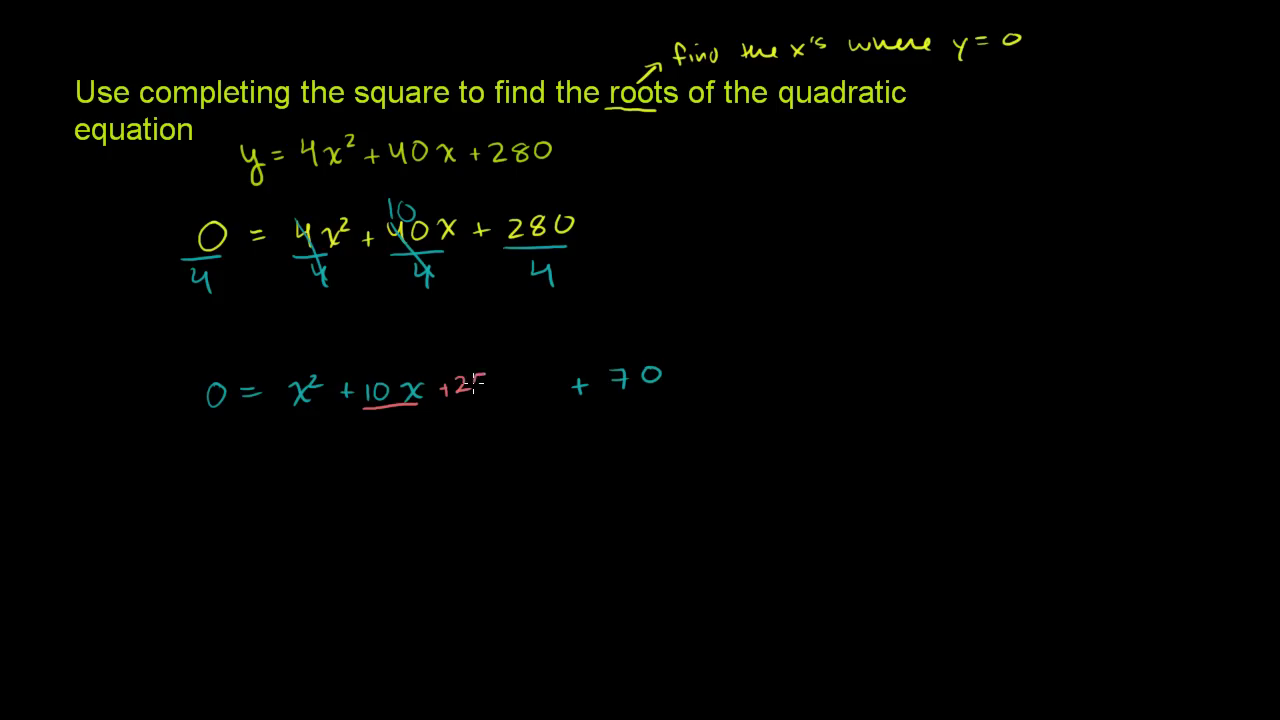 find the x's where y = 0
Use completing the square to find the roots of the quadratic
equation
y = 4x² + 40x + 280
10
0 = 4x² + 40x + 280
4 4 4 4
0 = x² + 10x + 25 + 70